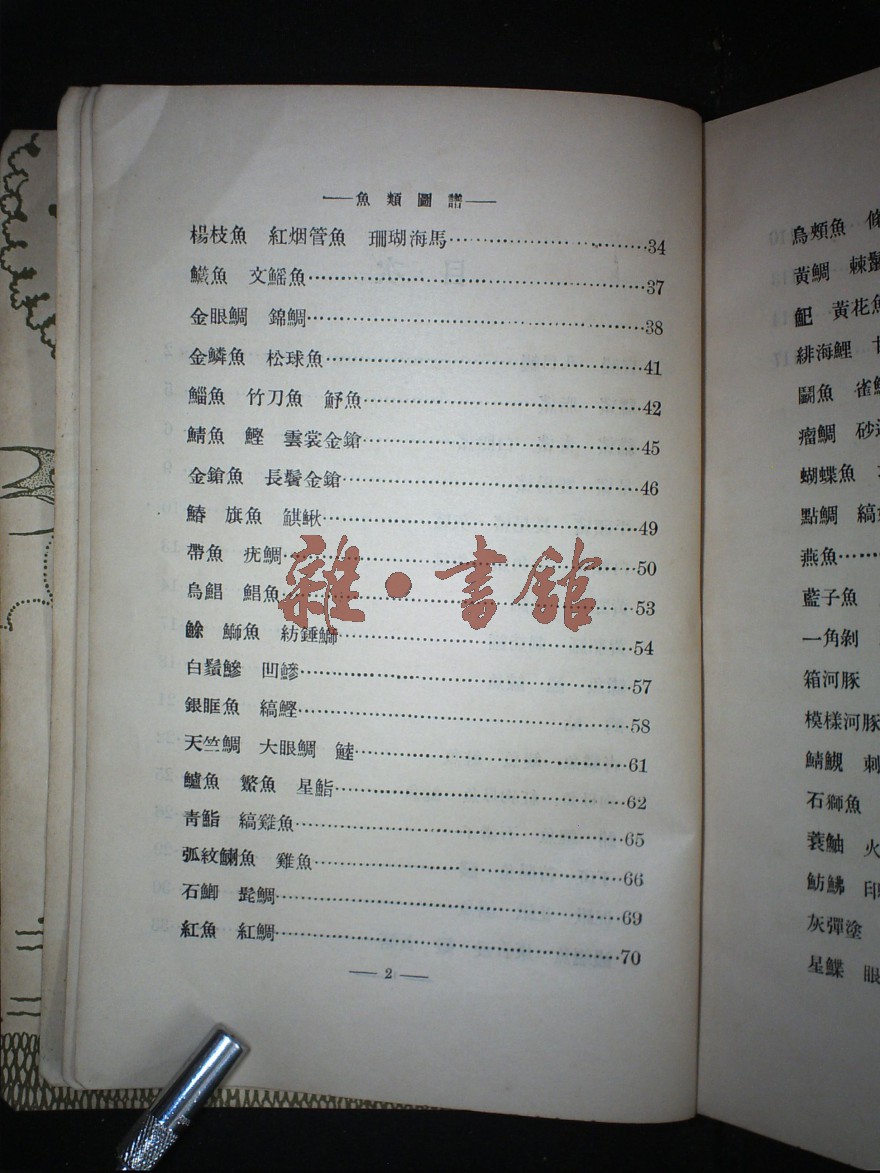 魚類圖譜
楊枝魚 紅烟管魚 珊瑚海馬 34
鱵魚 文鰩魚 37
金眼鯛 錦鯛 38
金鱗魚 松球魚 41
鯔魚 竹刀魚 魣魚 42
鯖魚 鰹 雲裳金鎗 45
金鎗魚 長鬐金鎗 46
鰆 旗魚 鯕鰍 49
帶魚 疣鯛 50
烏鯧 鯧魚 53
鮽 鰤魚 紡錘鰤 54
白鬚鰺 凹鰺 57
銀眶魚 縞鰹 58
天竺鯛 大眼鯛 鯥 61
鱸魚 鱉魚 星鮨 62
青鮨 縞雞魚 65
弧紋鯻魚 雞魚 66
石鯽 髭鯛 69
紅魚 紅鯛 70
2
雜·書館
烏頰魚
黃鯛 棘鬣
黃花魚
緋海鯉
鬭魚 雀鯛
瘤鯛
蝴蝶魚
點鯛 縞
燕魚
藍子魚
一角剝
箱河豚
模樣河豚
鯖覬 刺
石獅魚
蓑鮋 火
魴鮄 印
灰彈塗
星鰈 眼